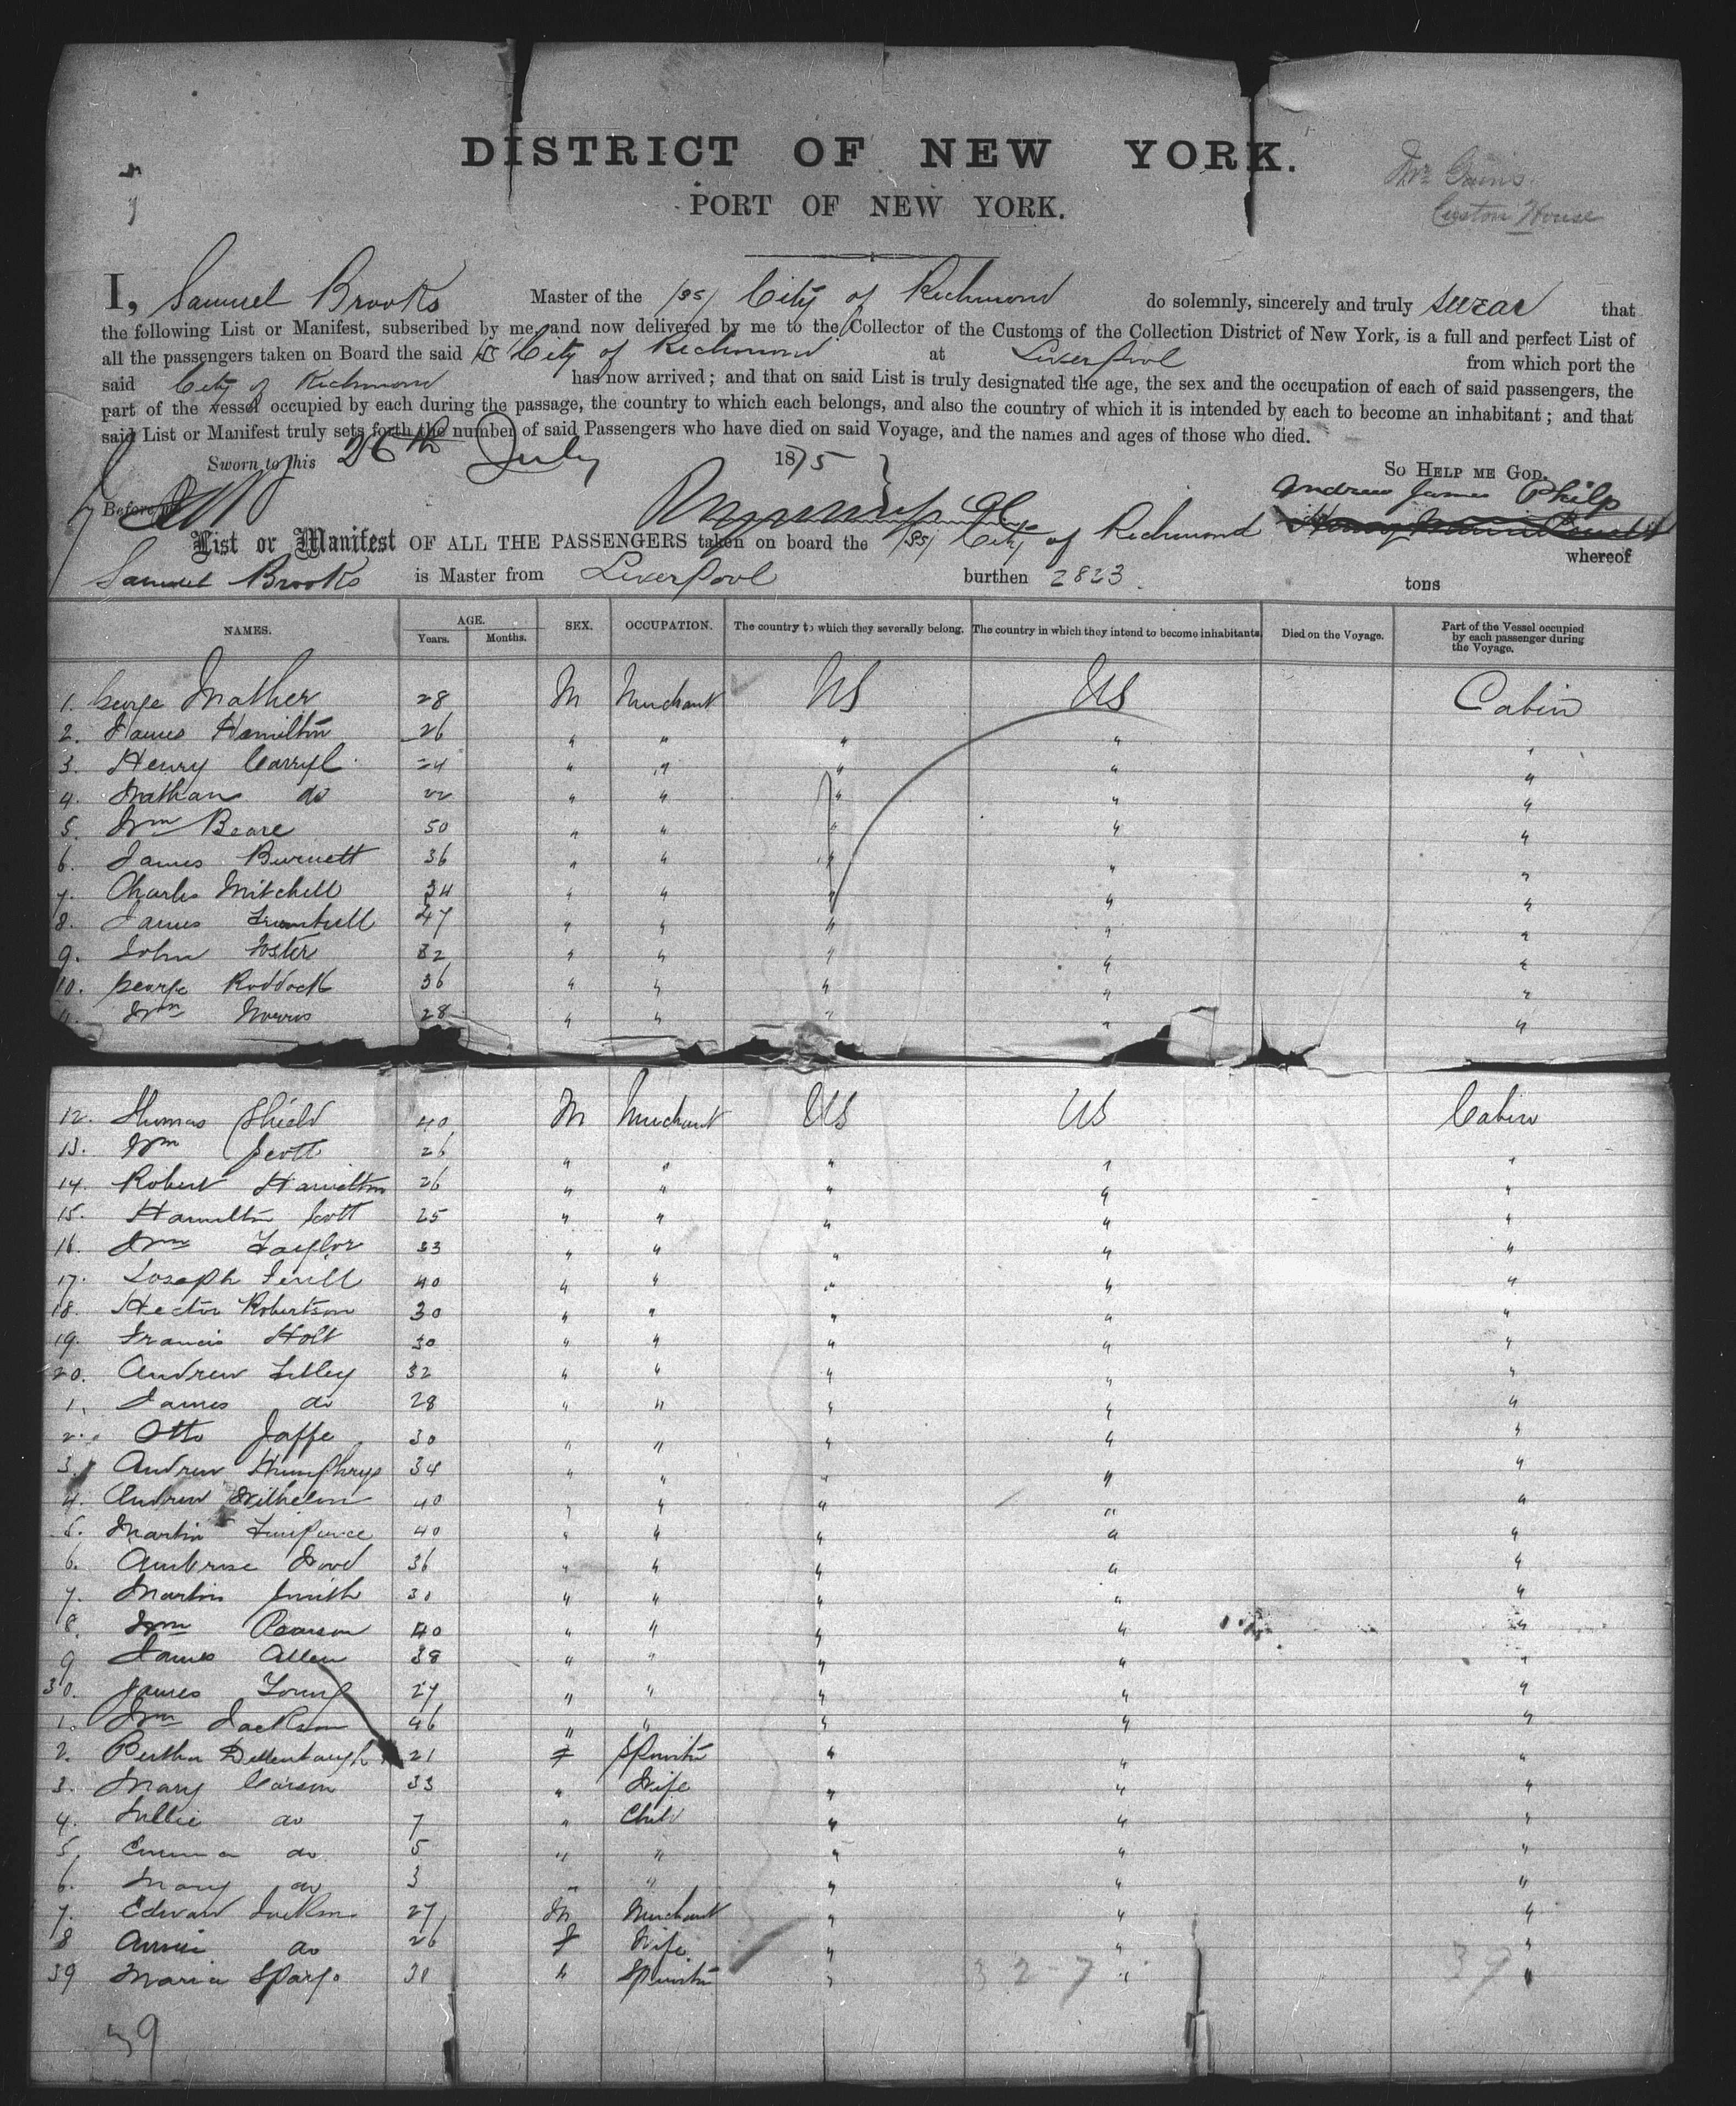 DISTRICT OF NEW YORK.
PORT OF NEW YORK.
Custom House
I, Samuel Brooks Master of the (SS) City of Richmond do solemnly, sincerely and truly swear that
the following List or Manifest, subscribed by me, and now delivered by me to the Collector of the Customs of the Collection District of New York, is a full and perfect List of
all the passengers taken on Board the said SS City of Richmond at Liverpool from which port the
said City of Richmond has now arrived; and that on said List is truly designated the age, the sex and the occupation of each of said passengers, the
part of the vessel occupied by each during the passage, the country to which each belongs, and also the country of which it is intended by each to become an inhabitant; and that
said List or Manifest truly sets forth the number of said Passengers who have died on said Voyage, and the names and ages of those who died.
Sworn to this 26th July 1875 So HELP ME GOD.
Before me Andrew James Philp
List or Manifest OF ALL THE PASSENGERS taken on board the (SS) City of Richmond whereof
Samuel Brooks is Master from Liverpool burthen 2823 tons
NAMES. AGE. Years. Months. SEX. OCCUPATION. The country to which they severally belong. The country in which they intend to become inhabitants. Died on the Voyage. Part of the Vessel occupied by each passenger during the Voyage.
1. George Mather 28 M Merchant US US Cabin
2. James Hamilton 26 " " " " "
3. Henry Carryl 24 " " " " "
4. Nathan do 22 " " " " "
5. Wm Beare 50 " " " " "
6. James Burnett 36 " " " " "
7. Charles Mitchell 34 " " " " "
8. James Turnbull 47 " " " " "
9. John Foster 32 " " " " "
10. George Roddock 36 " " " " "
11. Wm Norris 28 " " " " "
12. Thomas Shield 40 M Merchant US US Cabin
13. Wm Scott 26 " " " " "
14. Robert Hamilton 26 " " " " "
15. Hamilton Scott 25 " " " " "
16. Wm Taylor 33 " " " " "
17. Joseph 40 " " " " "
18. Hector Robertson 30 " " " " "
19. Francis Holt 30 " " " " "
20. Andrew Lilley 32 " " " " "
1. James do 28 " " " " "
2. Otto Jaffe 30 " " " " "
3. Andrew Humphrys 34 " " " " "
4. Andrew Wilhelm 40 " " " " "
5. Martin 40 " " " " "
6. Ambrose Wood 36 " " " " "
7. Martin Smith 30 " " " " "
8. Wm Pearson 40 " " " " "
9 James Allen 38 " " " " "
30. James Young 27 " " " " "
1. Wm Jackson 46 " " " " "
2. Bertha Dellenbaugh 21 F Spinster " " "
3. Mary Carson 33 " Wife " " "
4. Lillie do 7 " Child " " "
5. Emma do 5 " " " " "
6. Mary do 3 " " " " "
7. Edward Jackson 27 M Merchant " " "
8 Annie do 26 F Wife " " "
39 Maria Spargo 30 " Spinster " " "
32-7 39
39